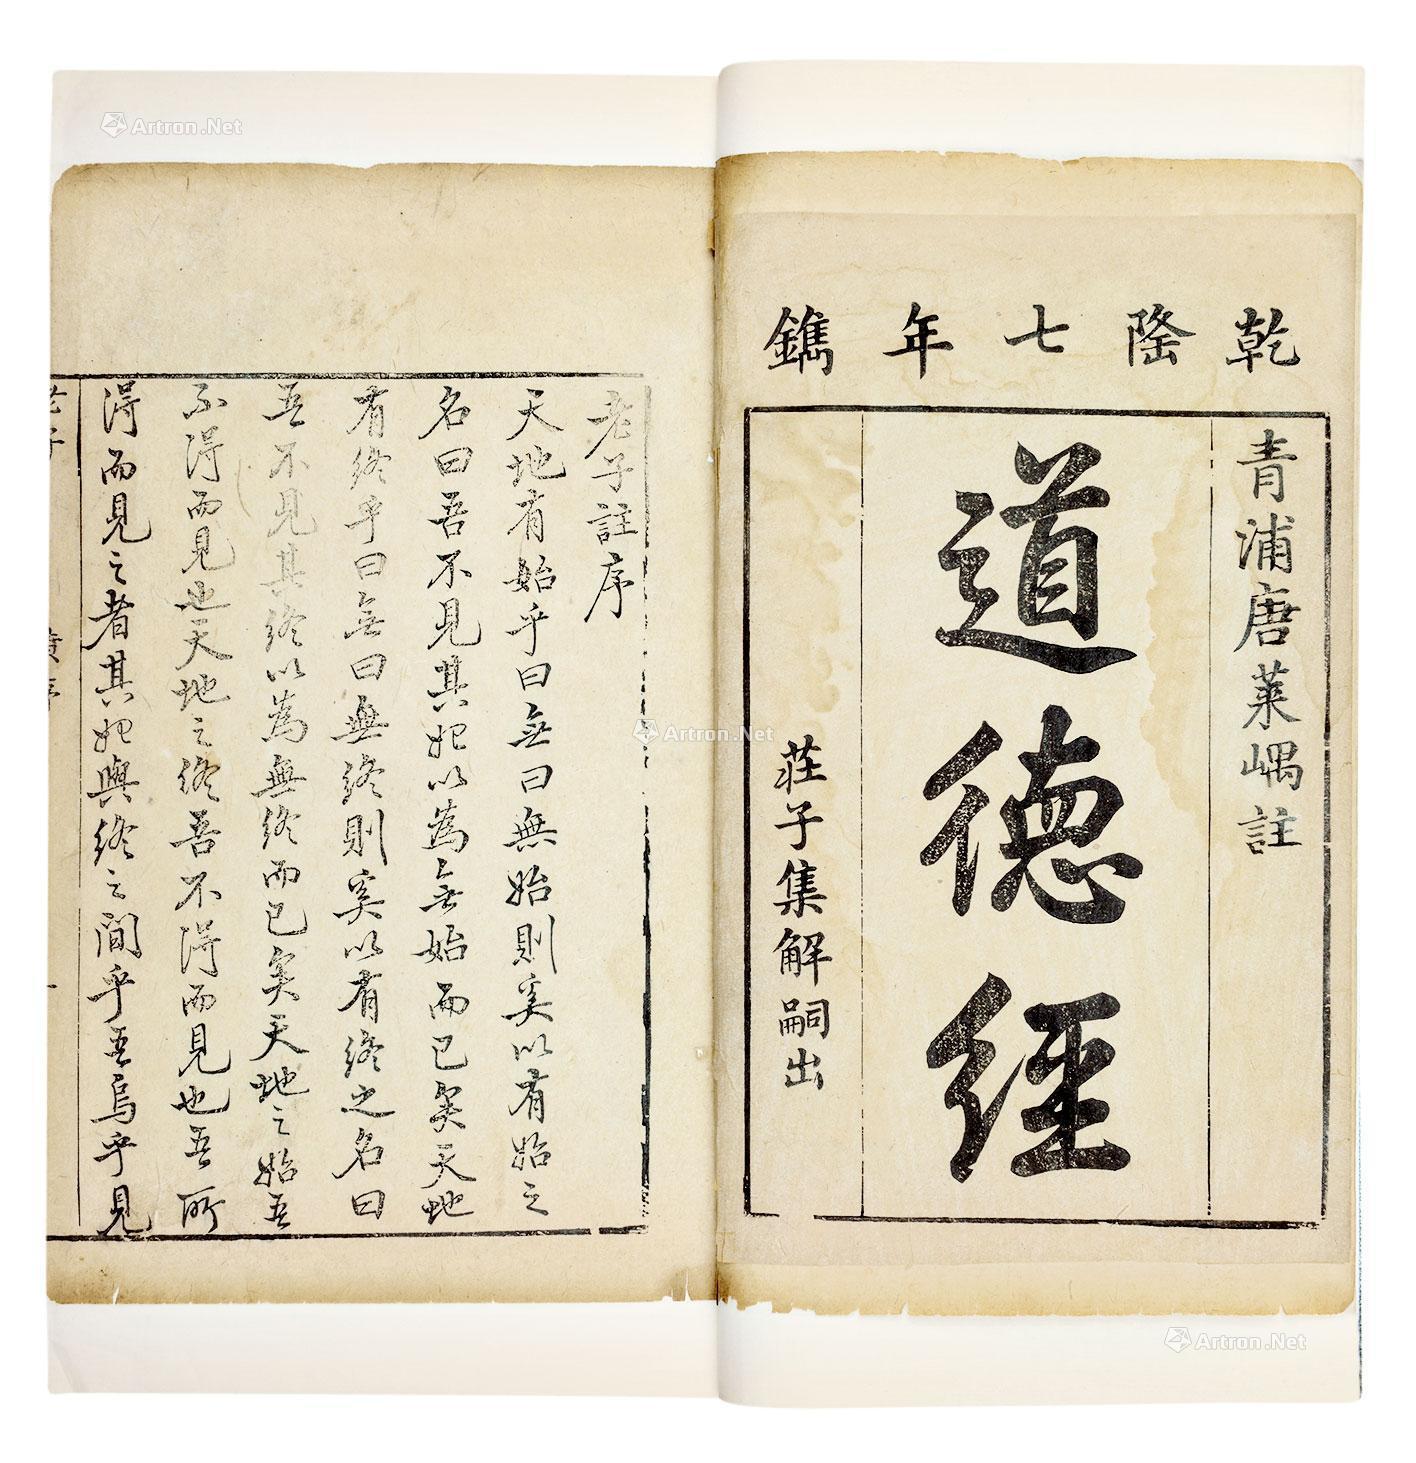 乾隆七年鐫
青浦唐萊嵎註
道德經
莊子集解嗣出
老子註序
天地有始乎曰無曰無始則奚以有始之
名曰吾不見其始以為無始而已矣天地
有終乎曰無曰無終則奚以有終之名曰
吾不見其終以為無終而已矣天地之始吾
不得而見也天地之終吾不得而見也吾所
得而見之者其始與終之間乎吾烏乎見
老子
序
一
Artron.Net
Artron.Net
Artron.Net